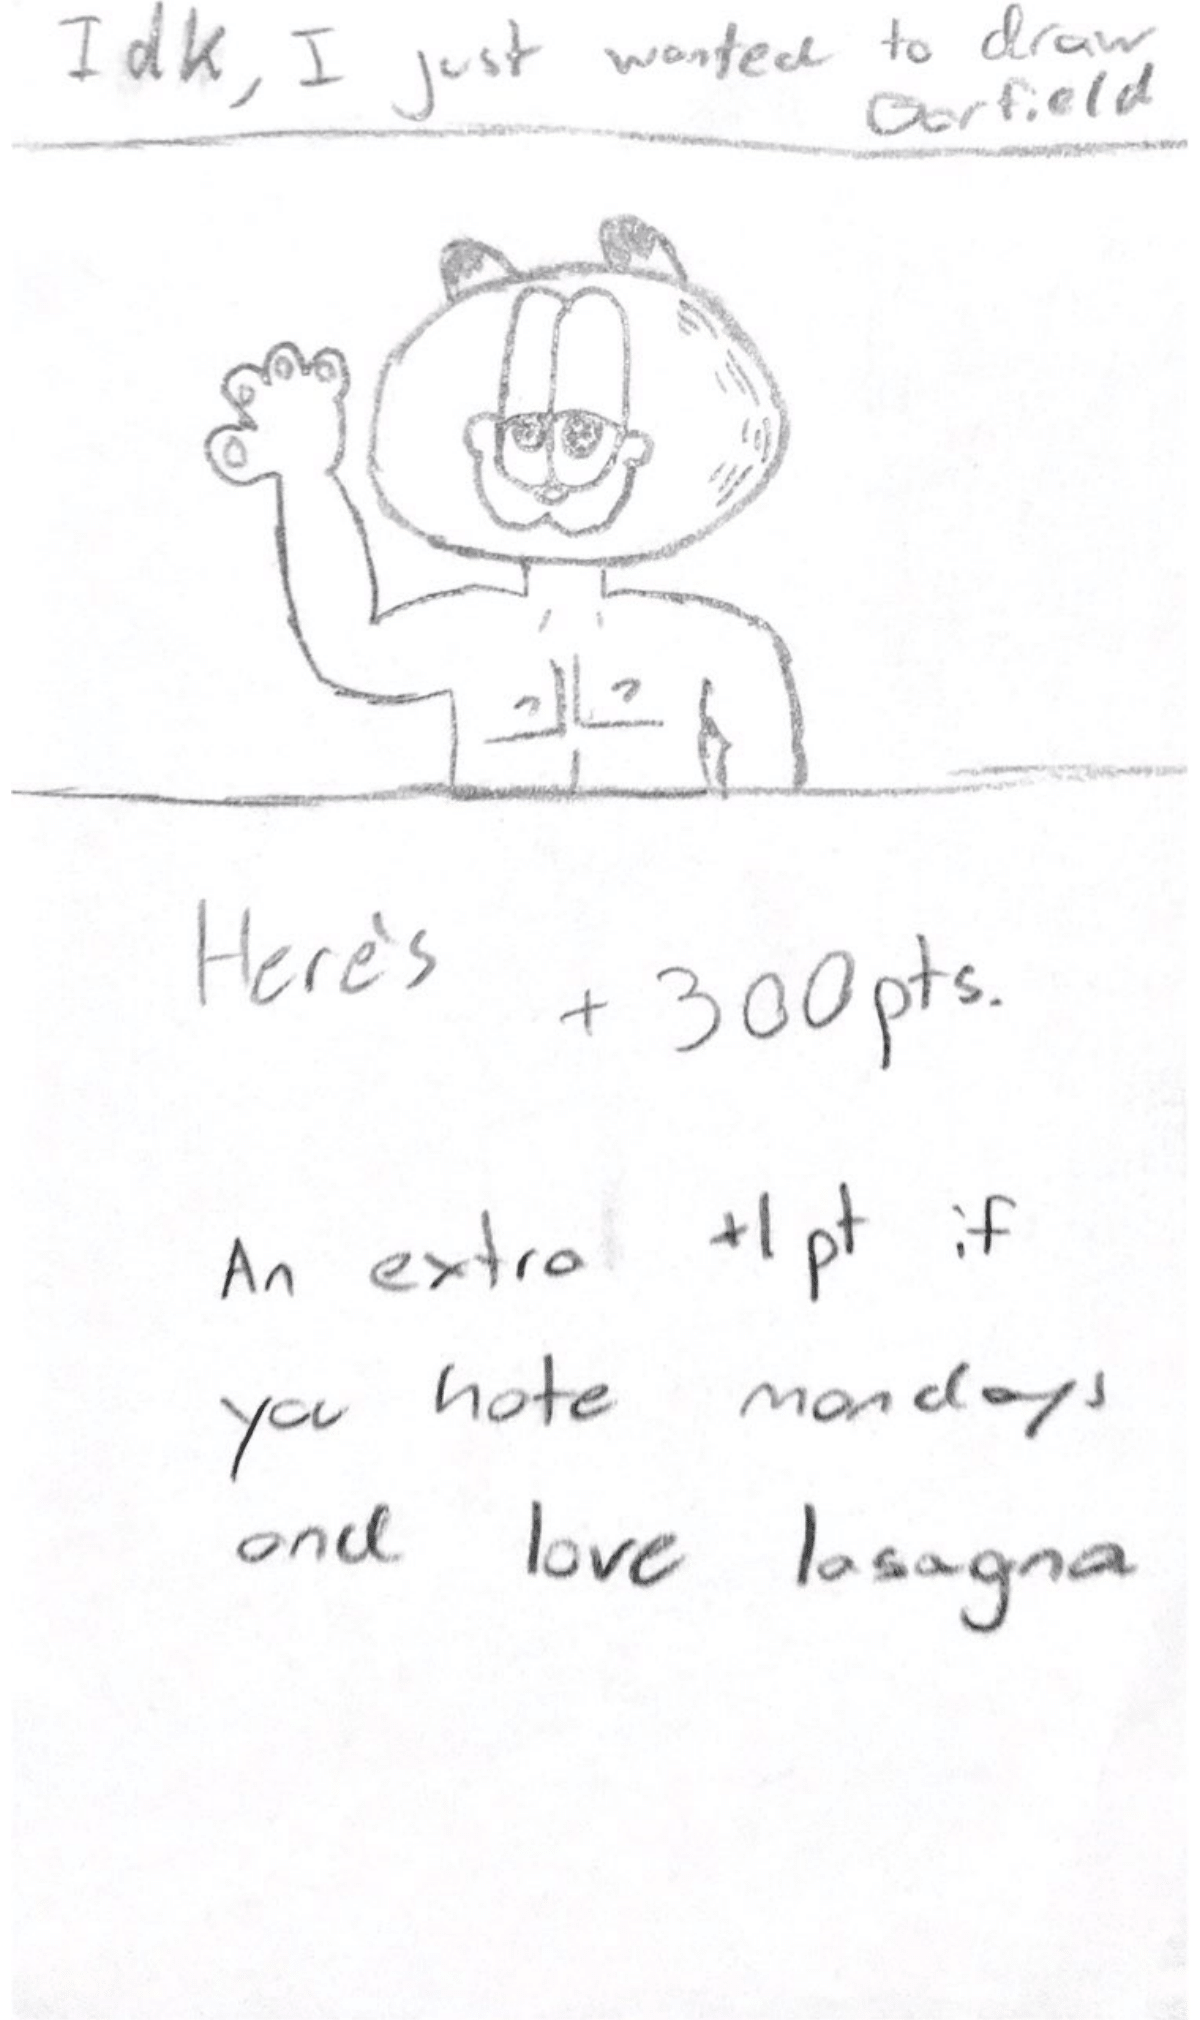 Idk, I just wanted to draw
Garfield
Here's + 300pts.
An extra +1 pt if
you hate mondays
and love lasagna